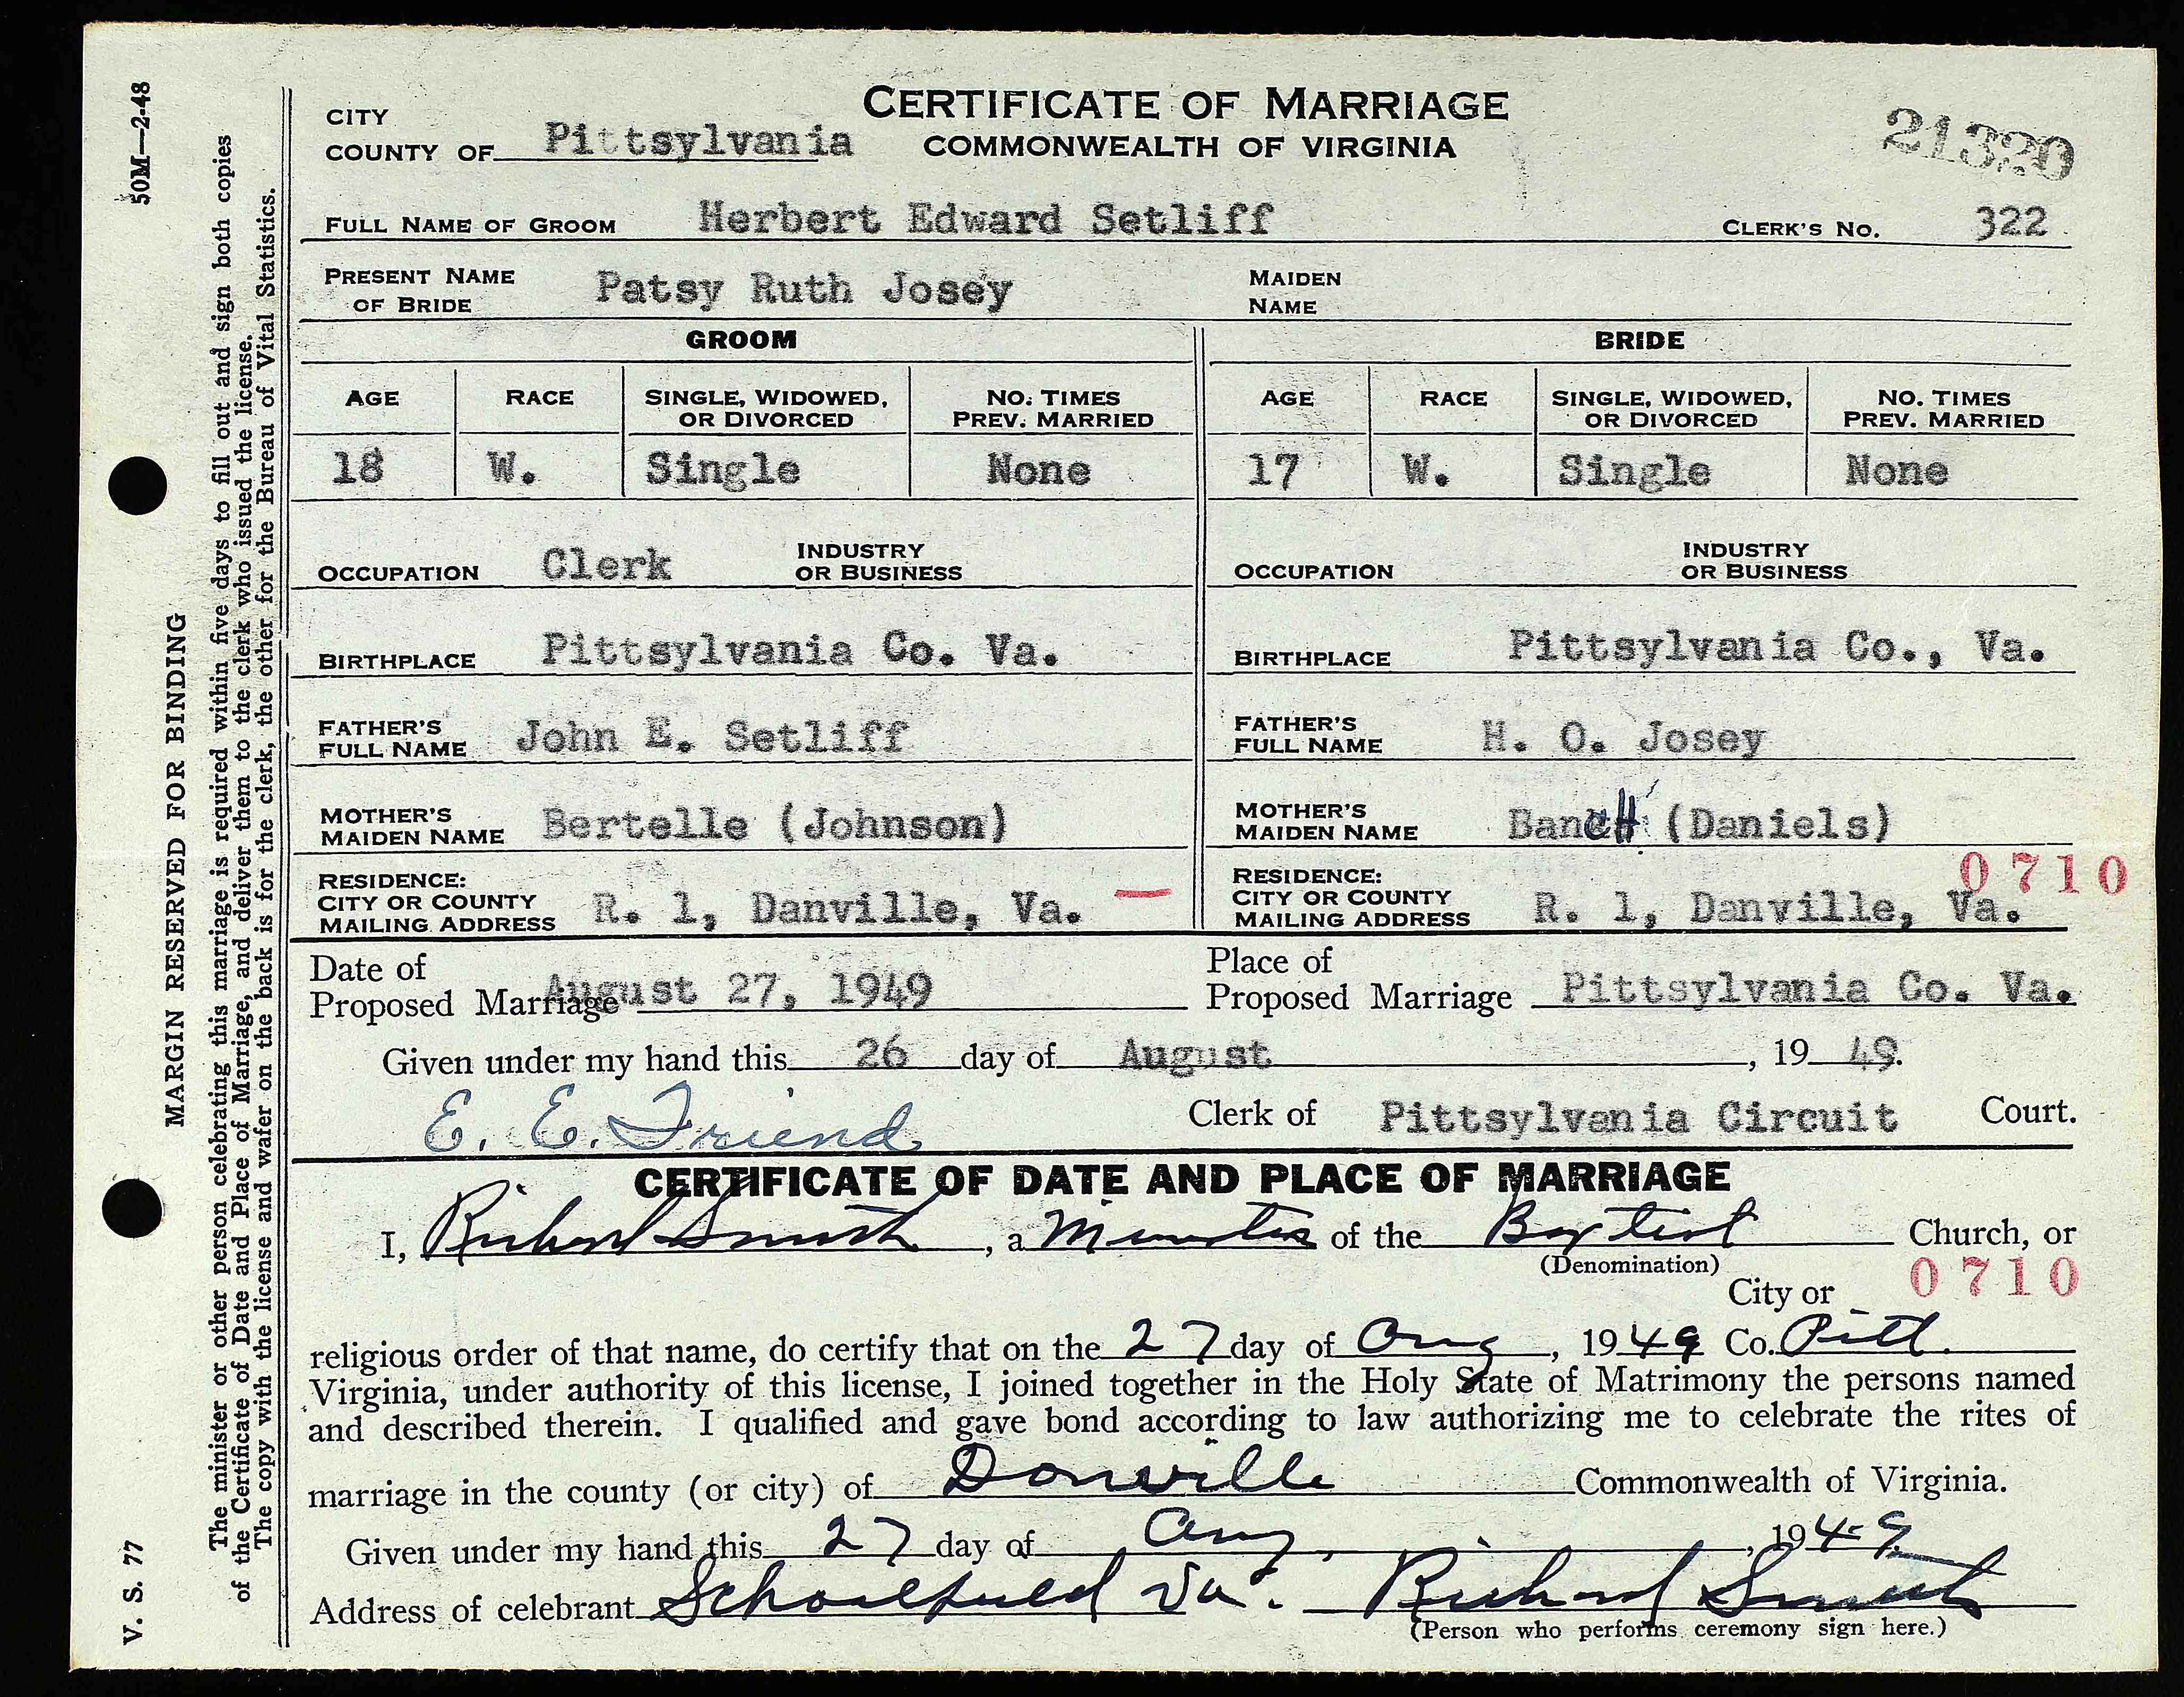 50M—2-48
MARGIN RESERVED FOR BINDING
The minister or other person celebrating this marriage is required within five days to fill out and sign both copies
of the Certificate of Date and Place of Marriage, and deliver them to the clerk who issued the license.
The copy with the license and wafer on the back is for the clerk, the other for the Bureau of Vital Statistics.
V. S. 77
CERTIFICATE OF MARRIAGE
COMMONWEALTH OF VIRGINIA
21320
CITY
COUNTY OF Pittsylvania
FULL NAME OF GROOM Herbert Edward Setliff CLERK'S NO. 322
PRESENT NAME OF BRIDE Patsy Ruth Josey MAIDEN NAME
GROOM BRIDE
AGE RACE SINGLE, WIDOWED, OR DIVORCED NO. TIMES PREV. MARRIED AGE RACE SINGLE, WIDOWED, OR DIVORCED NO. TIMES PREV. MARRIED
18 W. Single None 17 W. Single None
OCCUPATION Clerk INDUSTRY OR BUSINESS OCCUPATION INDUSTRY OR BUSINESS
BIRTHPLACE Pittsylvania Co. Va. BIRTHPLACE Pittsylvania Co., Va.
FATHER'S FULL NAME John E. Setliff FATHER'S FULL NAME H. O. Josey
MOTHER'S MAIDEN NAME Bertelle (Johnson) MOTHER'S MAIDEN NAME (Daniels)
0710
RESIDENCE: CITY OR COUNTY MAILING ADDRESS R. 1, Danville, Va. — RESIDENCE: CITY OR COUNTY MAILING ADDRESS R. 1, Danville, Va.
Date of Proposed Marriage August 27, 1949 Place of Proposed Marriage Pittsylvania Co. Va.
Given under my hand this 26 day of August, 19 49.
E. E. Friend Clerk of Pittsylvania Circuit Court.
CERTIFICATE OF DATE AND PLACE OF MARRIAGE
I, Richard Smith, a Minister of the Baptist Church, or
(Denomination)
City or 0710
religious order of that name, do certify that on the 27 day of Aug, 1949 Co. Pitt.
Virginia, under authority of this license, I joined together in the Holy State of Matrimony the persons named
and described therein. I qualified and gave bond according to law authorizing me to celebrate the rites of
marriage in the county (or city) of Danville Commonwealth of Virginia.
Given under my hand this 27 day of Aug, 1949
Address of celebrant Schoolfield Va. Richard Smith
(Person who performs ceremony sign here.)